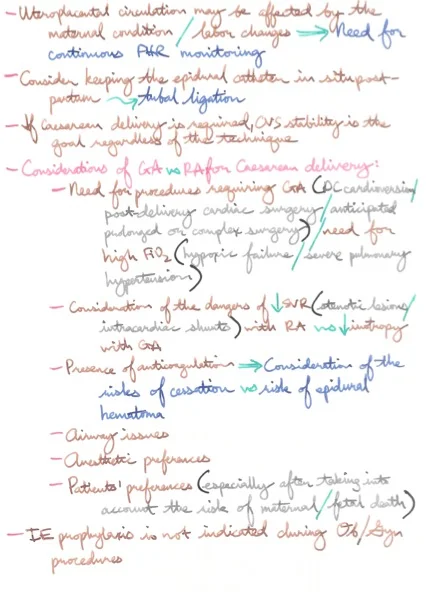 - Uteroplacental circulation may be affected by the
maternal condition / labor changes → Need for
continuous FHR monitoring
- Consider keeping the epidural catheter in situ post-
partum → tubal ligation
- If Caesarean delivery is required, CVS stability is the
goal regardless of the technique
- Considerations of GA vs RA for Caesarean delivery:
- Need for procedures requiring GA (DC cardioversion/
post-delivery cardiac surgery / anticipated
prolonged or complex surgery) / need for
high FiO2 (hypoxic failure / severe pulmonary
hypertension)
- Consideration of the dangers of ↓SVR (stenotic lesions/
intracardiac shunts) with RA vs ↓inotropy
with GA
- Presence of anticoagulation → Consideration of the
risks of cessation vs risk of epidural
hematoma
- Airway issues
- Anesthetic preferences
- Patients' preferences (especially after taking into
account the risk of maternal / fetal death)
- IE prophylaxis is not indicated during Ob/Gyn
procedures